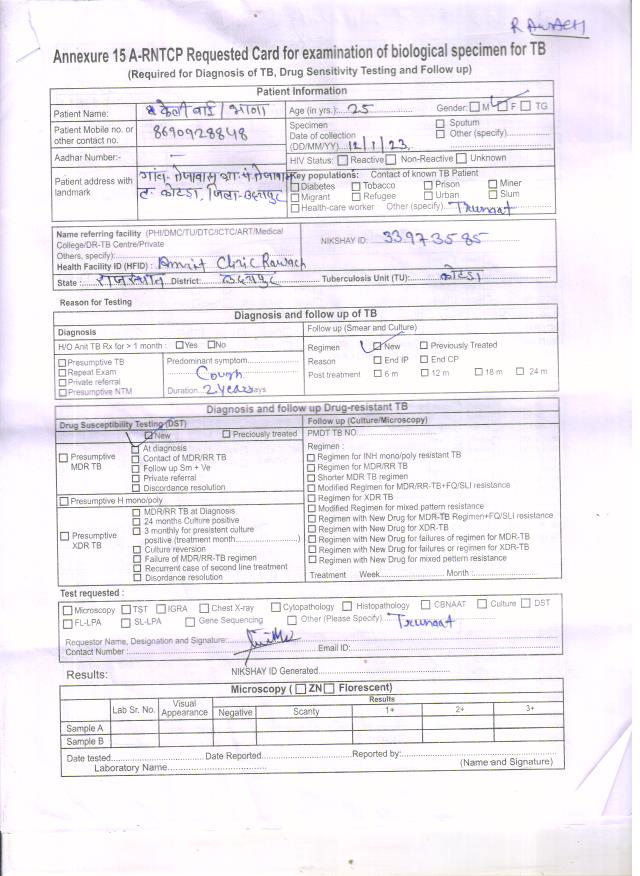 RAWACH
Annexure 15 A-RNTCP Requested Card for examination of biological specimen for TB
(Required for Diagnosis of TB, Drug Sensitivity Testing and Follow up)
Patient Information
Patient Name: केली बाई / भाणा Age (in yrs.):....25 Gender: ☐ M ☐ F ☐ TG
Patient Mobile no. or other contact no. 8690928848
Specimen
Date of collection
(DD/MM/YY) 12/1/23
☐ Sputum
☐ Other (specify)
Aadhar Number:- —
HIV Status: ☐ Reactive ☐ Non-Reactive ☐ Unknown
Patient address with landmark गांव- तेजावास
त. कोटडा, जिला-उदयपुर
Key populations: Contact of known TB Patient
☐ Diabetes ☐ Tobacco ☐ Prison ☐ Miner
☐ Migrant ☐ Refugee ☐ Urban ☐ Slum
☐ Health-care worker Other (specify) Trunaat
Name referring facility (PHI/DMC/TU/DTC/ICTC/ART/Medical
College/DR-TB Centre/Private
Others, specify)
NIKSHAY ID: 33973585
Health Facility ID (HFID) : Amrit Clinic Rawach
State : राजस्थान District: उदयपुर Tuberculosis Unit (TU): कोटडा
Reason for Testing
Diagnosis and follow up of TB
Diagnosis
Follow up (Smear and Culture)
H/O Anit TB Rx for > 1 month : ☐ Yes ☐ No
Regimen ☑ New ☐ Previously Treated
Reason ☐ End IP ☐ End CP
Post treatment ☐ 6 m ☐ 12 m ☐ 18 m ☐ 24 m
☐ Presumptive TB
☐ Repeat Exam
☐ Private referral
☐ Presumptive NTM
Predominant symptom
Cough
Duration 2 Years ays
Diagnosis and follow up Drug-resistant TB
Drug Susceptibility Testing (DST)
☑ New ☐ Preciously treated
☐ Presumptive MDR TB
☐ At diagnosis
☐ Contact of MDR/RR TB
☐ Follow up Sm + Ve
☐ Private referral
☐ Discordance resolution
☐ Presumptive H mono/poly
☐ Presumptive XDR TB
☐ MDR/RR TB at Diagnosis
☐ 24 months Culture positive
☐ 3 monthly for presistent culture
positive (treatment month)
☐ Culture reversion
☐ Failure of MDR/RR-TB regimen
☐ Recurrent case of second line treatment
☐ Disordance resolution
Follow up (Culture/Microscopy)
PMDT TB NO
Regimen :
☐ Regimen for INH mono/poly resistant TB
☐ Regimen for MDR/RR TB
☐ Shorter MDR TB regimen
☐ Modified Regimen for MDR/RR-TB+FQ/SLI resistance
☐ Regimen for XDR TB
☐ Modified Regimen for mixed pattern resistance
☐ Regimen with New Drug for MDR-TB Regimen+FQ/SLI resistance
☐ Regimen with New Drug for XDR-TB
☐ Regimen with New Drug for failures of regimen for MDR-TB
☐ Regimen with New Drug for failures or regimen for XDR-TB
☐ Regimen with New Drug for mixed pettern resistance
Treatment Week Month :
Test requested :
☐ Microscopy ☐ TST ☐ IGRA ☐ Chest X-ray ☐ Cytopathology ☐ Histopathology ☐ CBNAAT ☐ Culture ☐ DST
☐ FL-LPA ☐ SL-LPA ☐ Gene Sequencing ☐ Other (Please Specify) Trunaat
Requestor Name, Designation and Signature:
Contact Number : Email ID:
Results: NIKSHAY ID Generated
Microscopy ( ☐ ZN ☐ Florescent)
Lab Sr. No. Visual Appearance Results
Negative Scanty 1+ 2+ 3+
Sample A
Sample B
Date tested Date Reported Reported by:
Laboratory Name (Name and Signature)